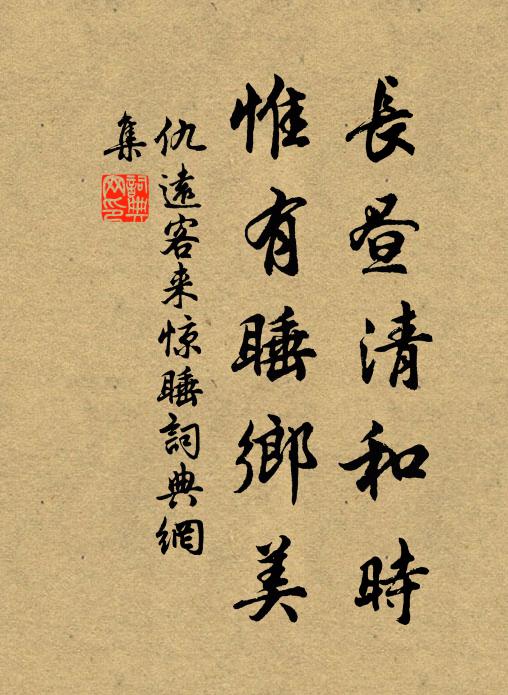 長昼清和時
惟有睡鄉美
仇遠客来惊睡詞典網
集
詞典
网印